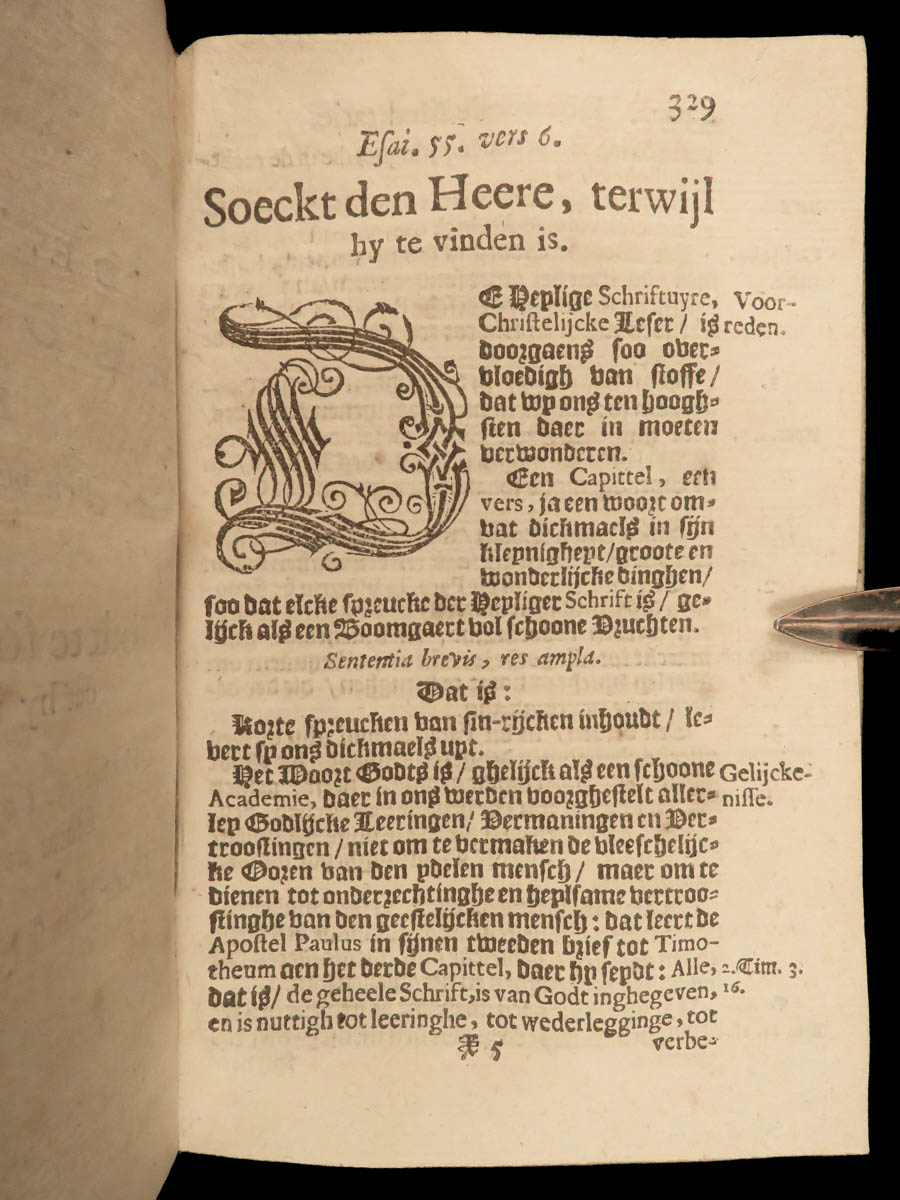 329
Esai. 55. vers 6.
Soeckt den Heere, terwijl
hy te vinden is.
DE Heylige Schriftuyre, Voor-
Christelijcke Leser / is reden.
doorgaens soo over-
vloedigh van stoffe /
dat wy ons ten hoogh-
sten daer in moeten
verwonderen.
Een Capittel, een
vers, ja een woort om-
vat dickmaels in sijn
kleynigheyt / groote en
wonderlijcke dinghen /
soo dat elcke spreucke der Heyliger Schrift is / ge-
lijck als een Boomgaert vol schoone Vruchten.
Sententia brevis, res ampla.
Dat is:
Korte spreucken van sin-rijcken inhoudt / le-
vert sy ons dickmaels uyt.
Het Woort Godts is / ghelijck als een schoone Gelijcke-
Academie, daer in ons werden voorghestelt aller- nisse.
ley Godlijcke Leeringen / Vermaningen en Ver-
troostingen / niet om te vermaken de vleeschelijc-
ke Ooren van den ydelen mensch / maer om te
dienen tot onderrechtinghe en heylsame vertroo-
stinghe van den geestelijcken mensch: dat leert de
Apostel Paulus in sijnen tweeden brief tot Timo-
theum aen het derde Capittel, daer hy seydt: Alle, 2. Tim. 3.
dat is / de geheele Schrift, is van Godt inghegeven, 16.
en is nuttigh tot leeringhe, tot wederlegginge, tot
X 5 verbe-